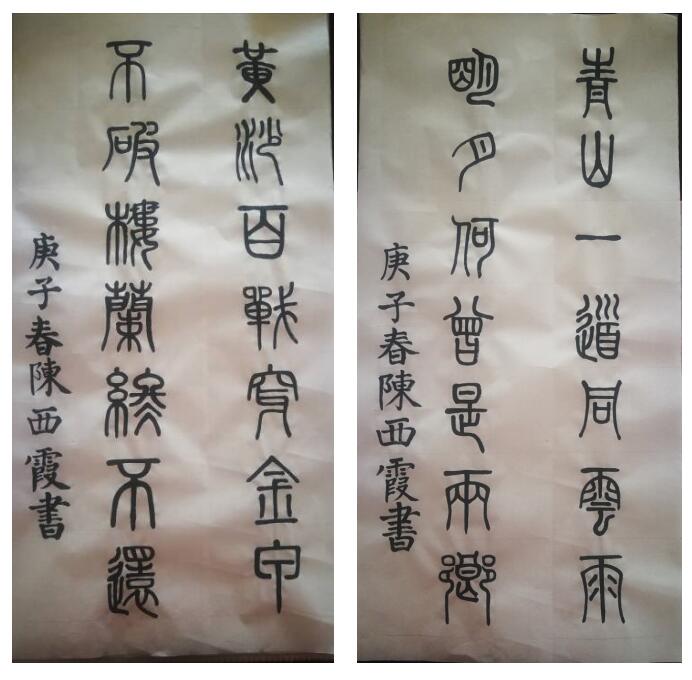 黃沙百戰穿金甲
不破樓蘭終不還
庚子春陳西霞書
青山一道同雲雨
明月何曾是兩鄉
庚子春陳西霞書